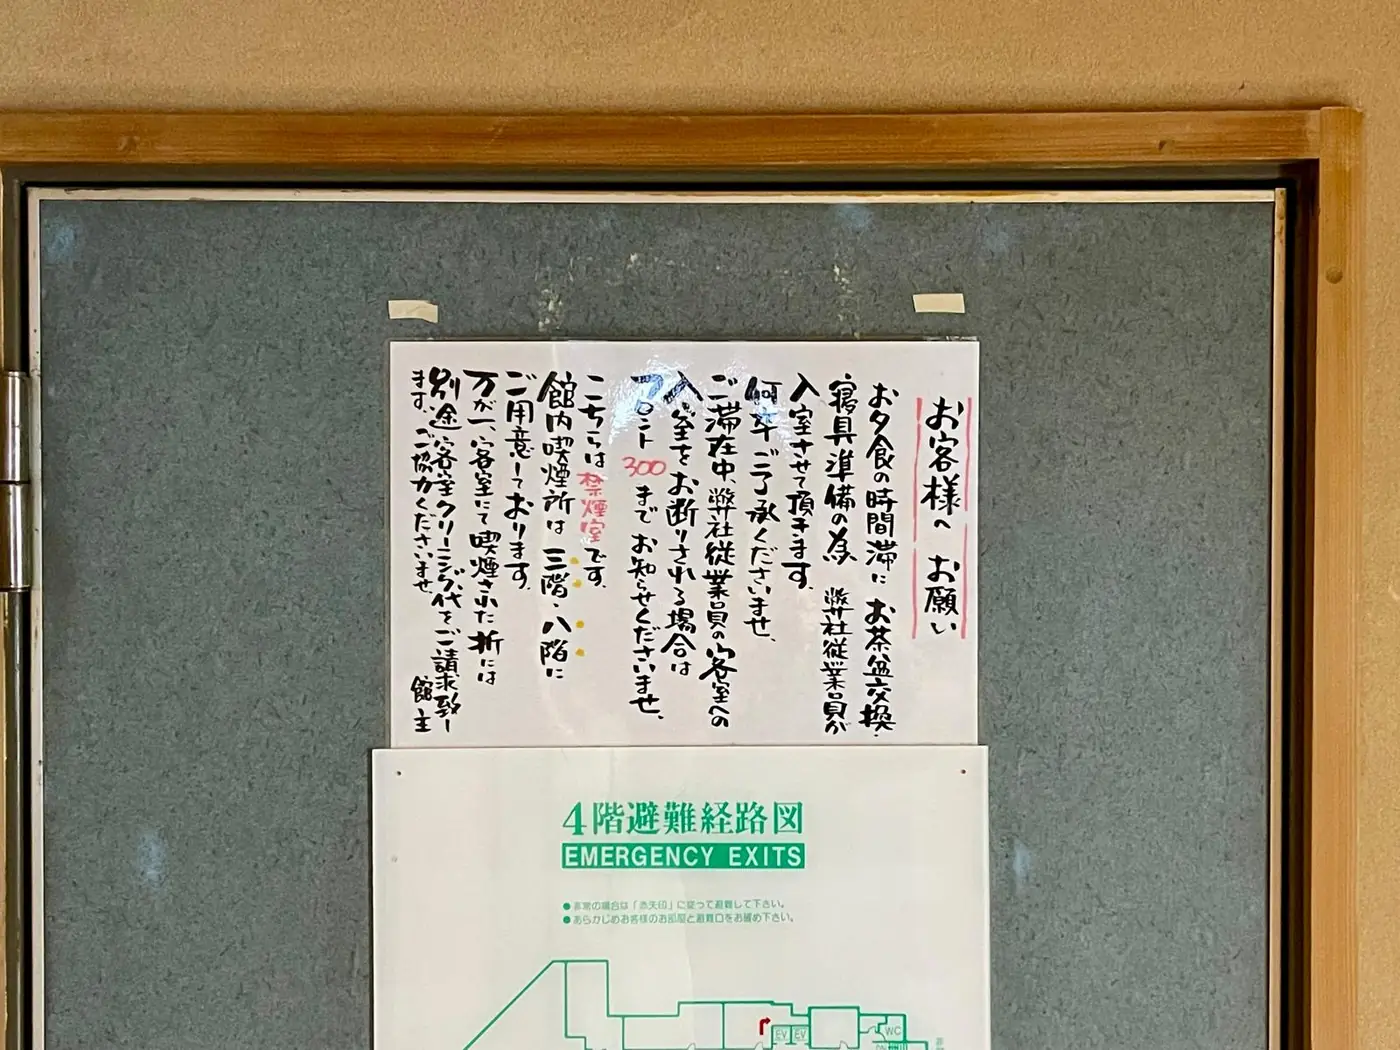 お客様へ お願い
お夕食の時間滞に お茶盆交換・
寝具準備の為 弊社従業員が
入室させて頂きます。
何卒ご了承くださいませ、
ご滞在中、弊社従業員の客室への
入室をお断りされる場合は
フロント 300 までお知らせくださいませ、
こちらは禁煙室です。
館内喫煙所は 三階・八階に
ご用意しております。
万が一、客室にて喫煙された折には
別途客室クリーニング代をご請求致し
ます。ご協力くださいませ 館主
4階避難経路図
EMERGENCY EXITS
●非常の場合は「赤矢印」に従って避難して下さい。
●あらかじめお客様のお部屋と避難口をお確め下さい。
EV EV
WC